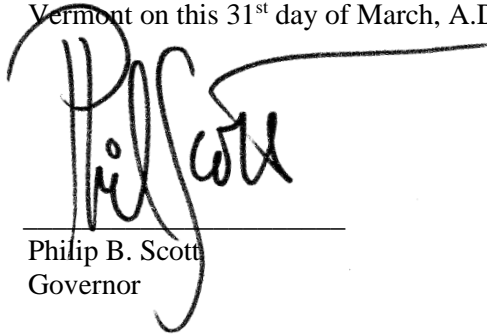 Vermont on this 31st day of March, A.D
Phil Scott
Philip B. Scott
Governor